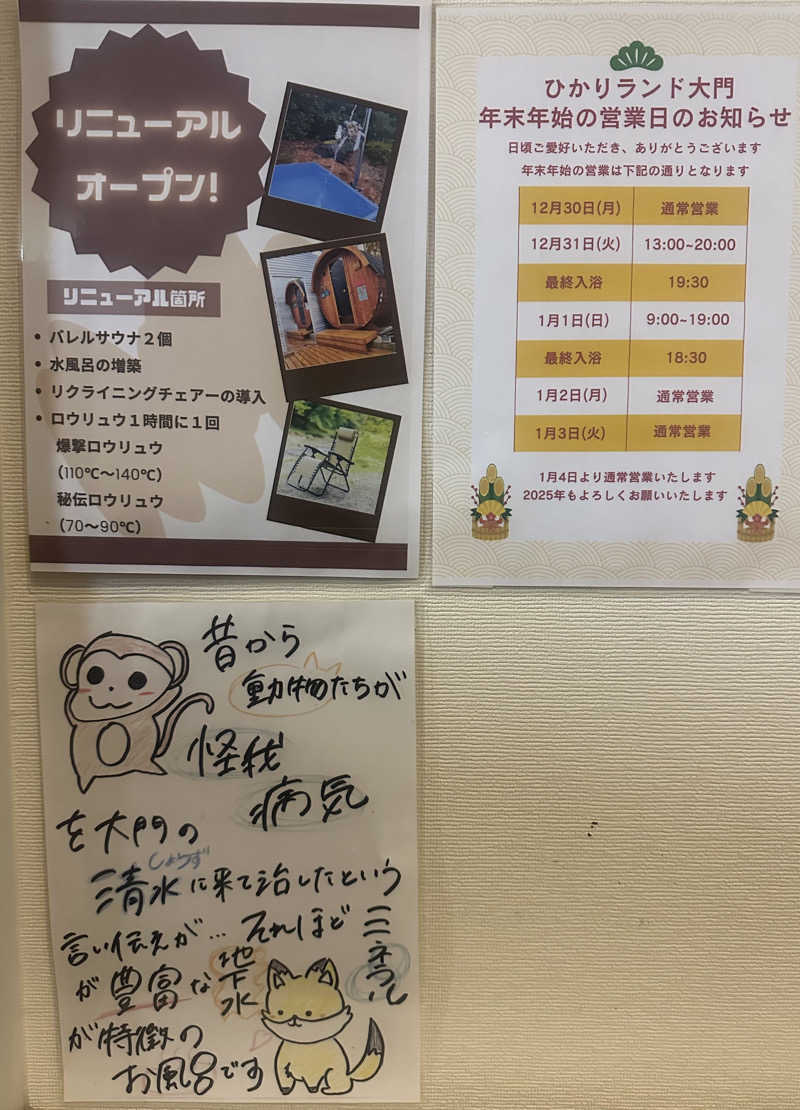 リニューアル
オープン!
リニューアル箇所
• バレルサウナ２個
• 水風呂の増築
• リクライニングチェアーの導入
• ロウリュウ１時間に１回
爆撃ロウリュウ
(110℃〜140℃)
秘伝ロウリュウ
(70〜90℃)
ひかりランド大門
年末年始の営業日のお知らせ
日頃ご愛好いただき、ありがとうございます
年末年始の営業は下記の通りとなります
12月30日(月) 通常営業
12月31日(火) 13:00~20:00
最終入浴 19:30
1月1日(日) 9:00~19:00
最終入浴 18:30
1月2日(月) 通常営業
1月3日(火) 通常営業
1月4日より通常営業いたします
2025年もよろしくお願いいたします
昔から
動物たちが
怪我
病気
を大門の
しょうず
清水に来て治したという
言い伝えが…それほどミネラル
が豊富な地下水
が特徴の
お風呂です